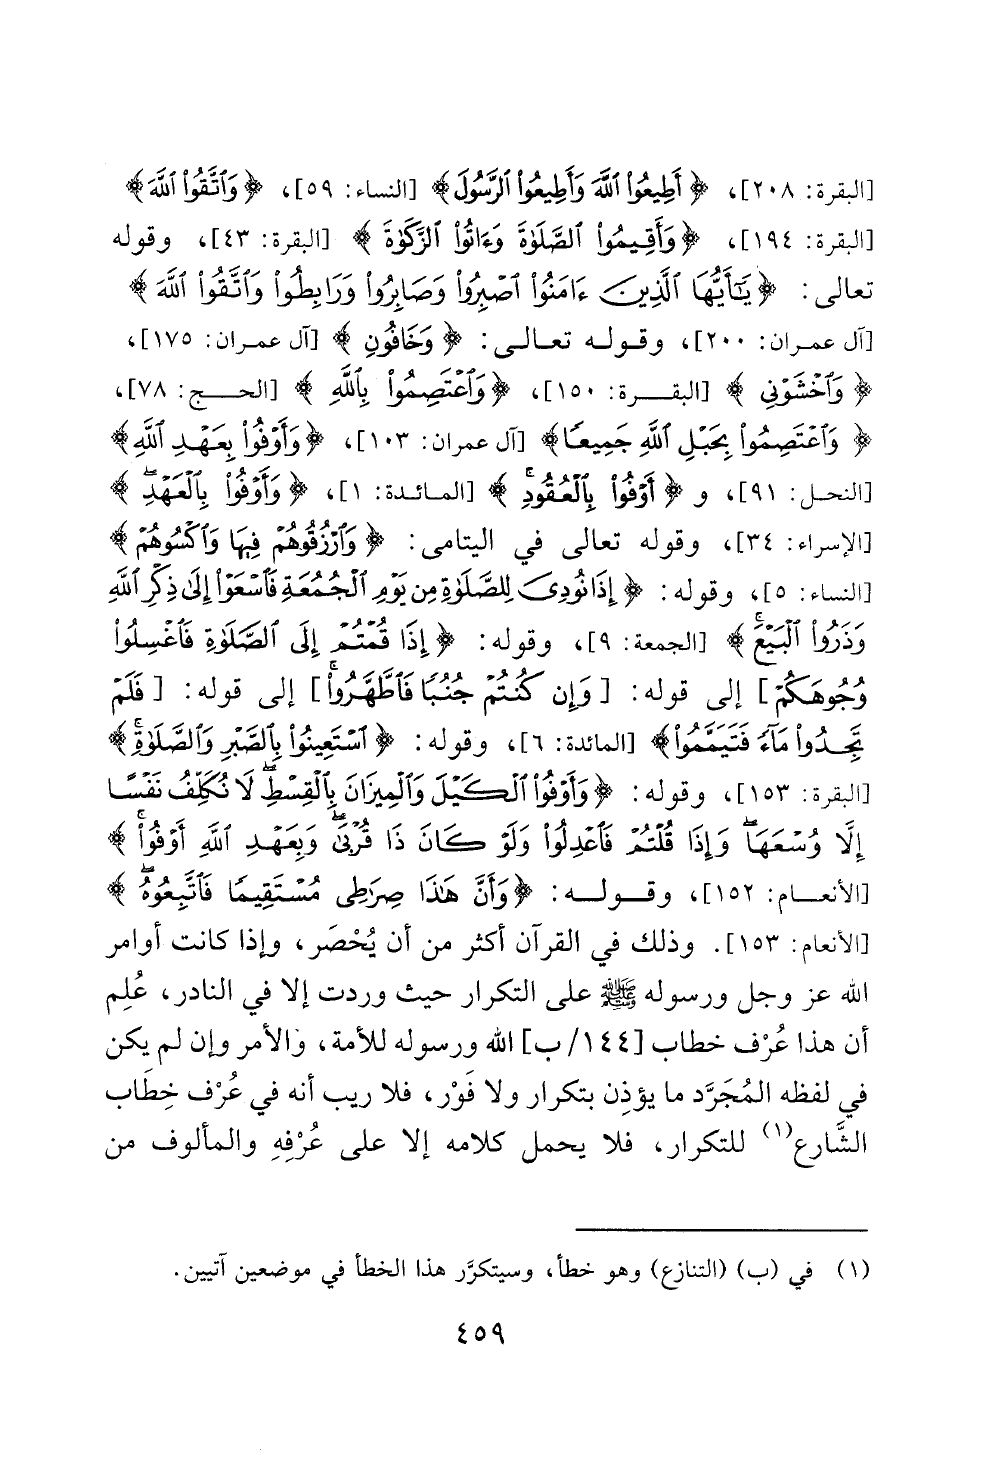 [البقرة: ٢٠٨]، ﴿أَطِيعُوا۟ ٱللَّهَ وَأَطِيعُوا۟ ٱلرَّسُولَ﴾ [النساء: ٥٩]، ﴿وَٱتَّقُوا۟ ٱللَّهَ﴾
[البقرة: ١٩٤]، ﴿وَأَقِيمُوا۟ ٱلصَّلَوٰةَ وَءَاتُوا۟ ٱلزَّكَوٰةَ﴾ [البقرة: ٤٣]، وقوله
تعالى: ﴿يَـٰٓأَيُّهَا ٱلَّذِينَ ءَامَنُوا۟ ٱصْبِرُوا۟ وَصَابِرُوا۟ وَرَابِطُوا۟ وَٱتَّقُوا۟ ٱللَّهَ﴾
[آل عمران: ٢٠٠]، وقوله تعالى: ﴿وَخَافُونِ﴾ [آل عمران: ١٧٥]،
﴿وَٱخْشَوْنِى﴾ [البقرة: ١٥٠]، ﴿وَٱعْتَصِمُوا۟ بِٱللَّهِ﴾ [الحج: ٧٨]،
﴿وَٱعْتَصِمُوا۟ بِحَبْلِ ٱللَّهِ جَمِيعًا﴾ [آل عمران: ١٠٣]، ﴿وَأَوْفُوا۟ بِعَهْدِ ٱللَّهِ﴾
[النحل: ٩١]، و ﴿أَوْفُوا۟ بِٱلْعُقُودِ ۚ﴾ [المائدة: ١]، ﴿وَأَوْفُوا۟ بِٱلْعَهْدِ ۖ﴾
[الإسراء: ٣٤]، وقوله تعالى في اليتامى: ﴿وَٱرْزُقُوهُمْ فِيهَا وَٱكْسُوهُمْ﴾
[النساء: ٥]، وقوله: ﴿إِذَا نُودِىَ لِلصَّلَوٰةِ مِن يَوْمِ ٱلْجُمُعَةِ فَٱسْعَوْا۟ إِلَىٰ ذِكْرِ ٱللَّهِ
وَذَرُوا۟ ٱلْبَيْعَ ۚ﴾ [الجمعة: ٩]، وقوله: ﴿إِذَا قُمْتُمْ إِلَى ٱلصَّلَوٰةِ فَٱغْسِلُوا۟
وُجُوهَكُمْ] إلى قوله: [وَإِن كُنتُمْ جُنُبًا فَٱطَّهَّرُوا۟ ۚ] إلى قوله: [فَلَمْ
تَجِدُوا۟ مَآءً فَتَيَمَّمُوا۟﴾ [المائدة: ٦]، وقوله: ﴿ٱسْتَعِينُوا۟ بِٱلصَّبْرِ وَٱلصَّلَوٰةِ ۚ﴾
[البقرة: ١٥٣]، وقوله: ﴿وَأَوْفُوا۟ ٱلْكَيْلَ وَٱلْمِيزَانَ بِٱلْقِسْطِ ۖ لَا نُكَلِّفُ نَفْسًا
إِلَّا وُسْعَهَا ۖ وَإِذَا قُلْتُمْ فَٱعْدِلُوا۟ وَلَوْ كَانَ ذَا قُرْبَىٰ ۖ وَبِعَهْدِ ٱللَّهِ أَوْفُوا۟ ۚ﴾
[الأنعام: ١٥٢]، وقوله: ﴿وَأَنَّ هَـٰذَا صِرَٰطِى مُسْتَقِيمًا فَٱتَّبِعُوهُ ۖ﴾
[الأنعام: ١٥٣]. وذلك في القرآن أكثر من أن يُحْصَر، وإذا كانت أوامر
الله عز وجل ورسوله ﷺ على التكرار حيث وردت إلا في النادر، عُلِم
أن هذا عُرْف خطاب [١٤٤/ ب] الله ورسوله للأمة، والأمر وإن لم يكن
في لفظه المُجَرَّد ما يؤذِن بتكرار ولا فَوْر، فلا ريب أنه في عُرْف خِطَاب
الشَّارع(١) للتكرار، فلا يحمل كلامه إلا على عُرْفِهِ والمألوف من
(١) في (ب) (التنازع) وهو خطأ، وسيتكرَّر هذا الخطأ في موضعين آتيين.
٤٥٩